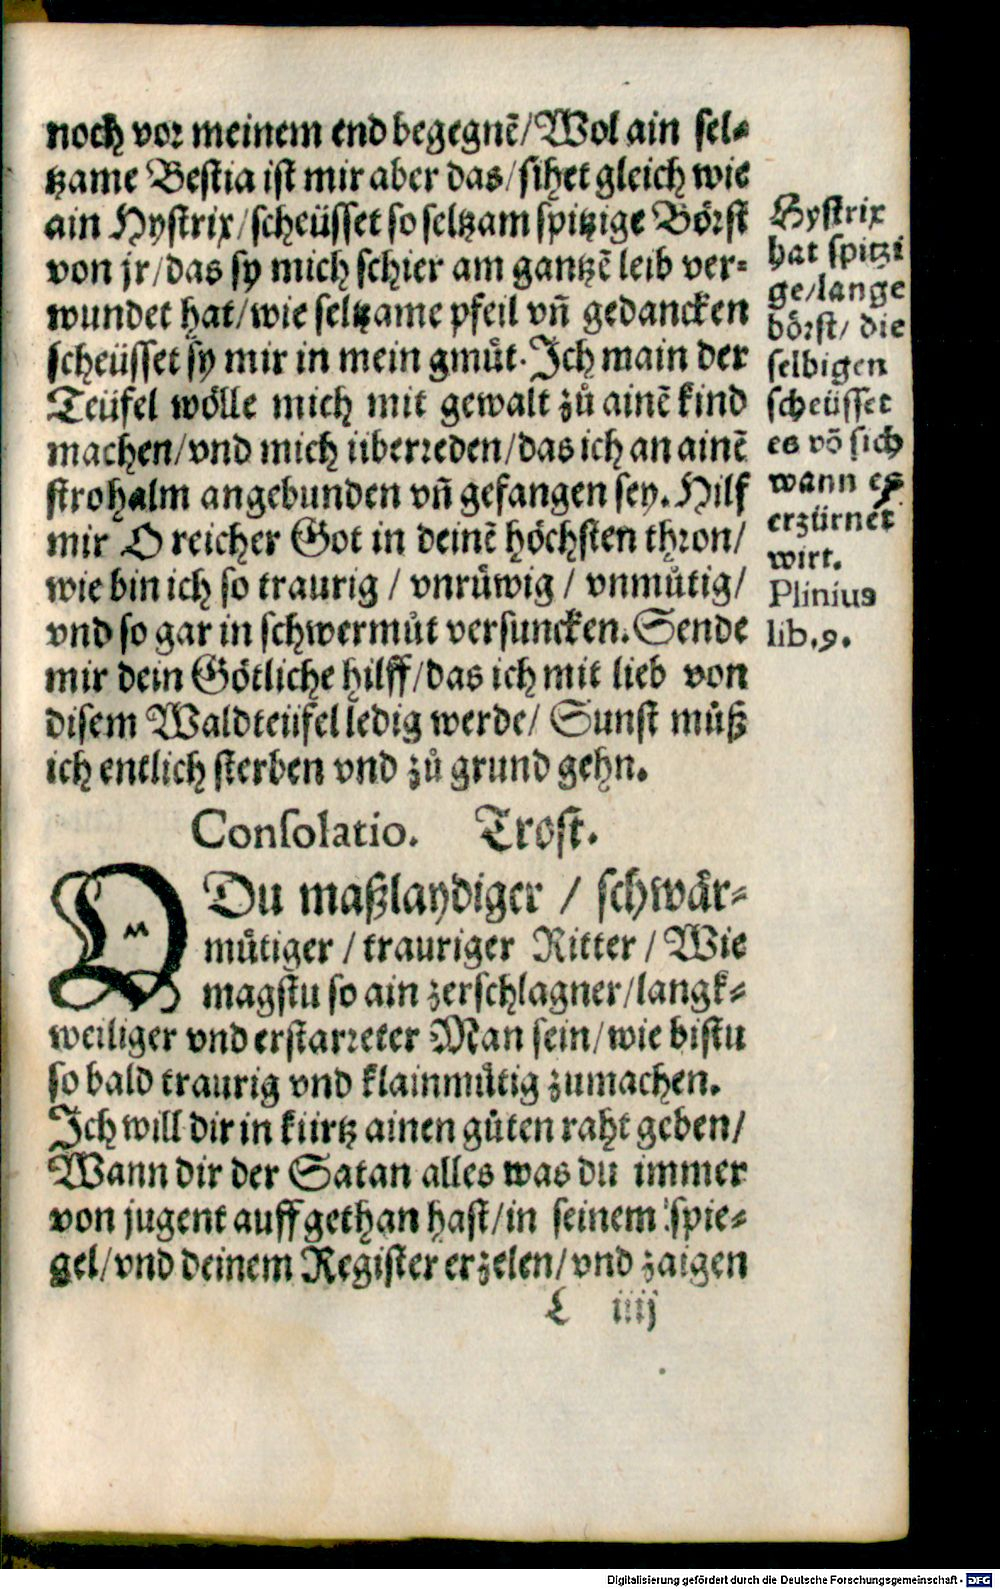 noch vor meinem end begegnẽ/Wol ain sel⸗
tzame Bestia ist mir aber das/sihet gleich wie
ain Hystrix/scheüsset so seltzam spitzige Börst
von jr/das sy mich schier am gantzẽ leib ver⸗
wundet hat/wie seltzame pfeil vñ gedancken
scheüsset sy mir in mein gmuͤt. Ich main der
Teüfel woͤlle mich mit gewalt zů ainẽ kind
machen/vnd mich überreden/das ich an ainẽ
strohalm angebunden vñ gefangen sey. Hilf
mir O reicher Got in deinẽ hoͤchsten thron/
wie bin ich so traurig / vnruͤwig / vnmuͤtig/
vnd so gar in schwermuͤt versuncken. Sende
mir dein Goͤtliche hilff/das ich mit lieb von
disem Waldteüfel ledig werde/ Sunst můß
ich entlich sterben vnd zů grund gehn.
Hystrix
hat spitzi
ge/lange
börst/ die
selbigen
scheüsset
es võ sich
wann es
erzürnet
wirt.
Plinius
lib.9.
Consolatio. Trost.
O Du maßlaydiger / schwaͤr⸗
muͤtiger / trauriger Ritter / Wie
magstu so ain zerschlagner/langk⸗
weiliger vnd erstarreter Man sein/wie bistu
so bald traurig vnd klainmuͤtig zumachen.
Ich will dir in kürtz ainen gůten raht geben/
Wann dir der Satan alles was du immer
von jugent auff gethan hast/in seinem spie⸗
gel/vnd deinem Register erzelen/vnd zaigen
L iiij
Digitalisierung gefördert durch die Deutsche Forschungsgemeinschaft - DFG